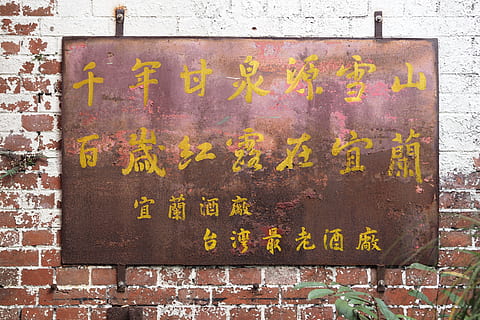 千年甘泉源雪山
百歲紅露在宜蘭
宜蘭酒廠
台灣最老酒廠